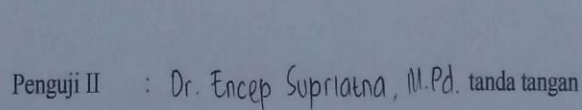 Penguji II : Dr. Encep Supriatna, M.Pd. tanda tangan